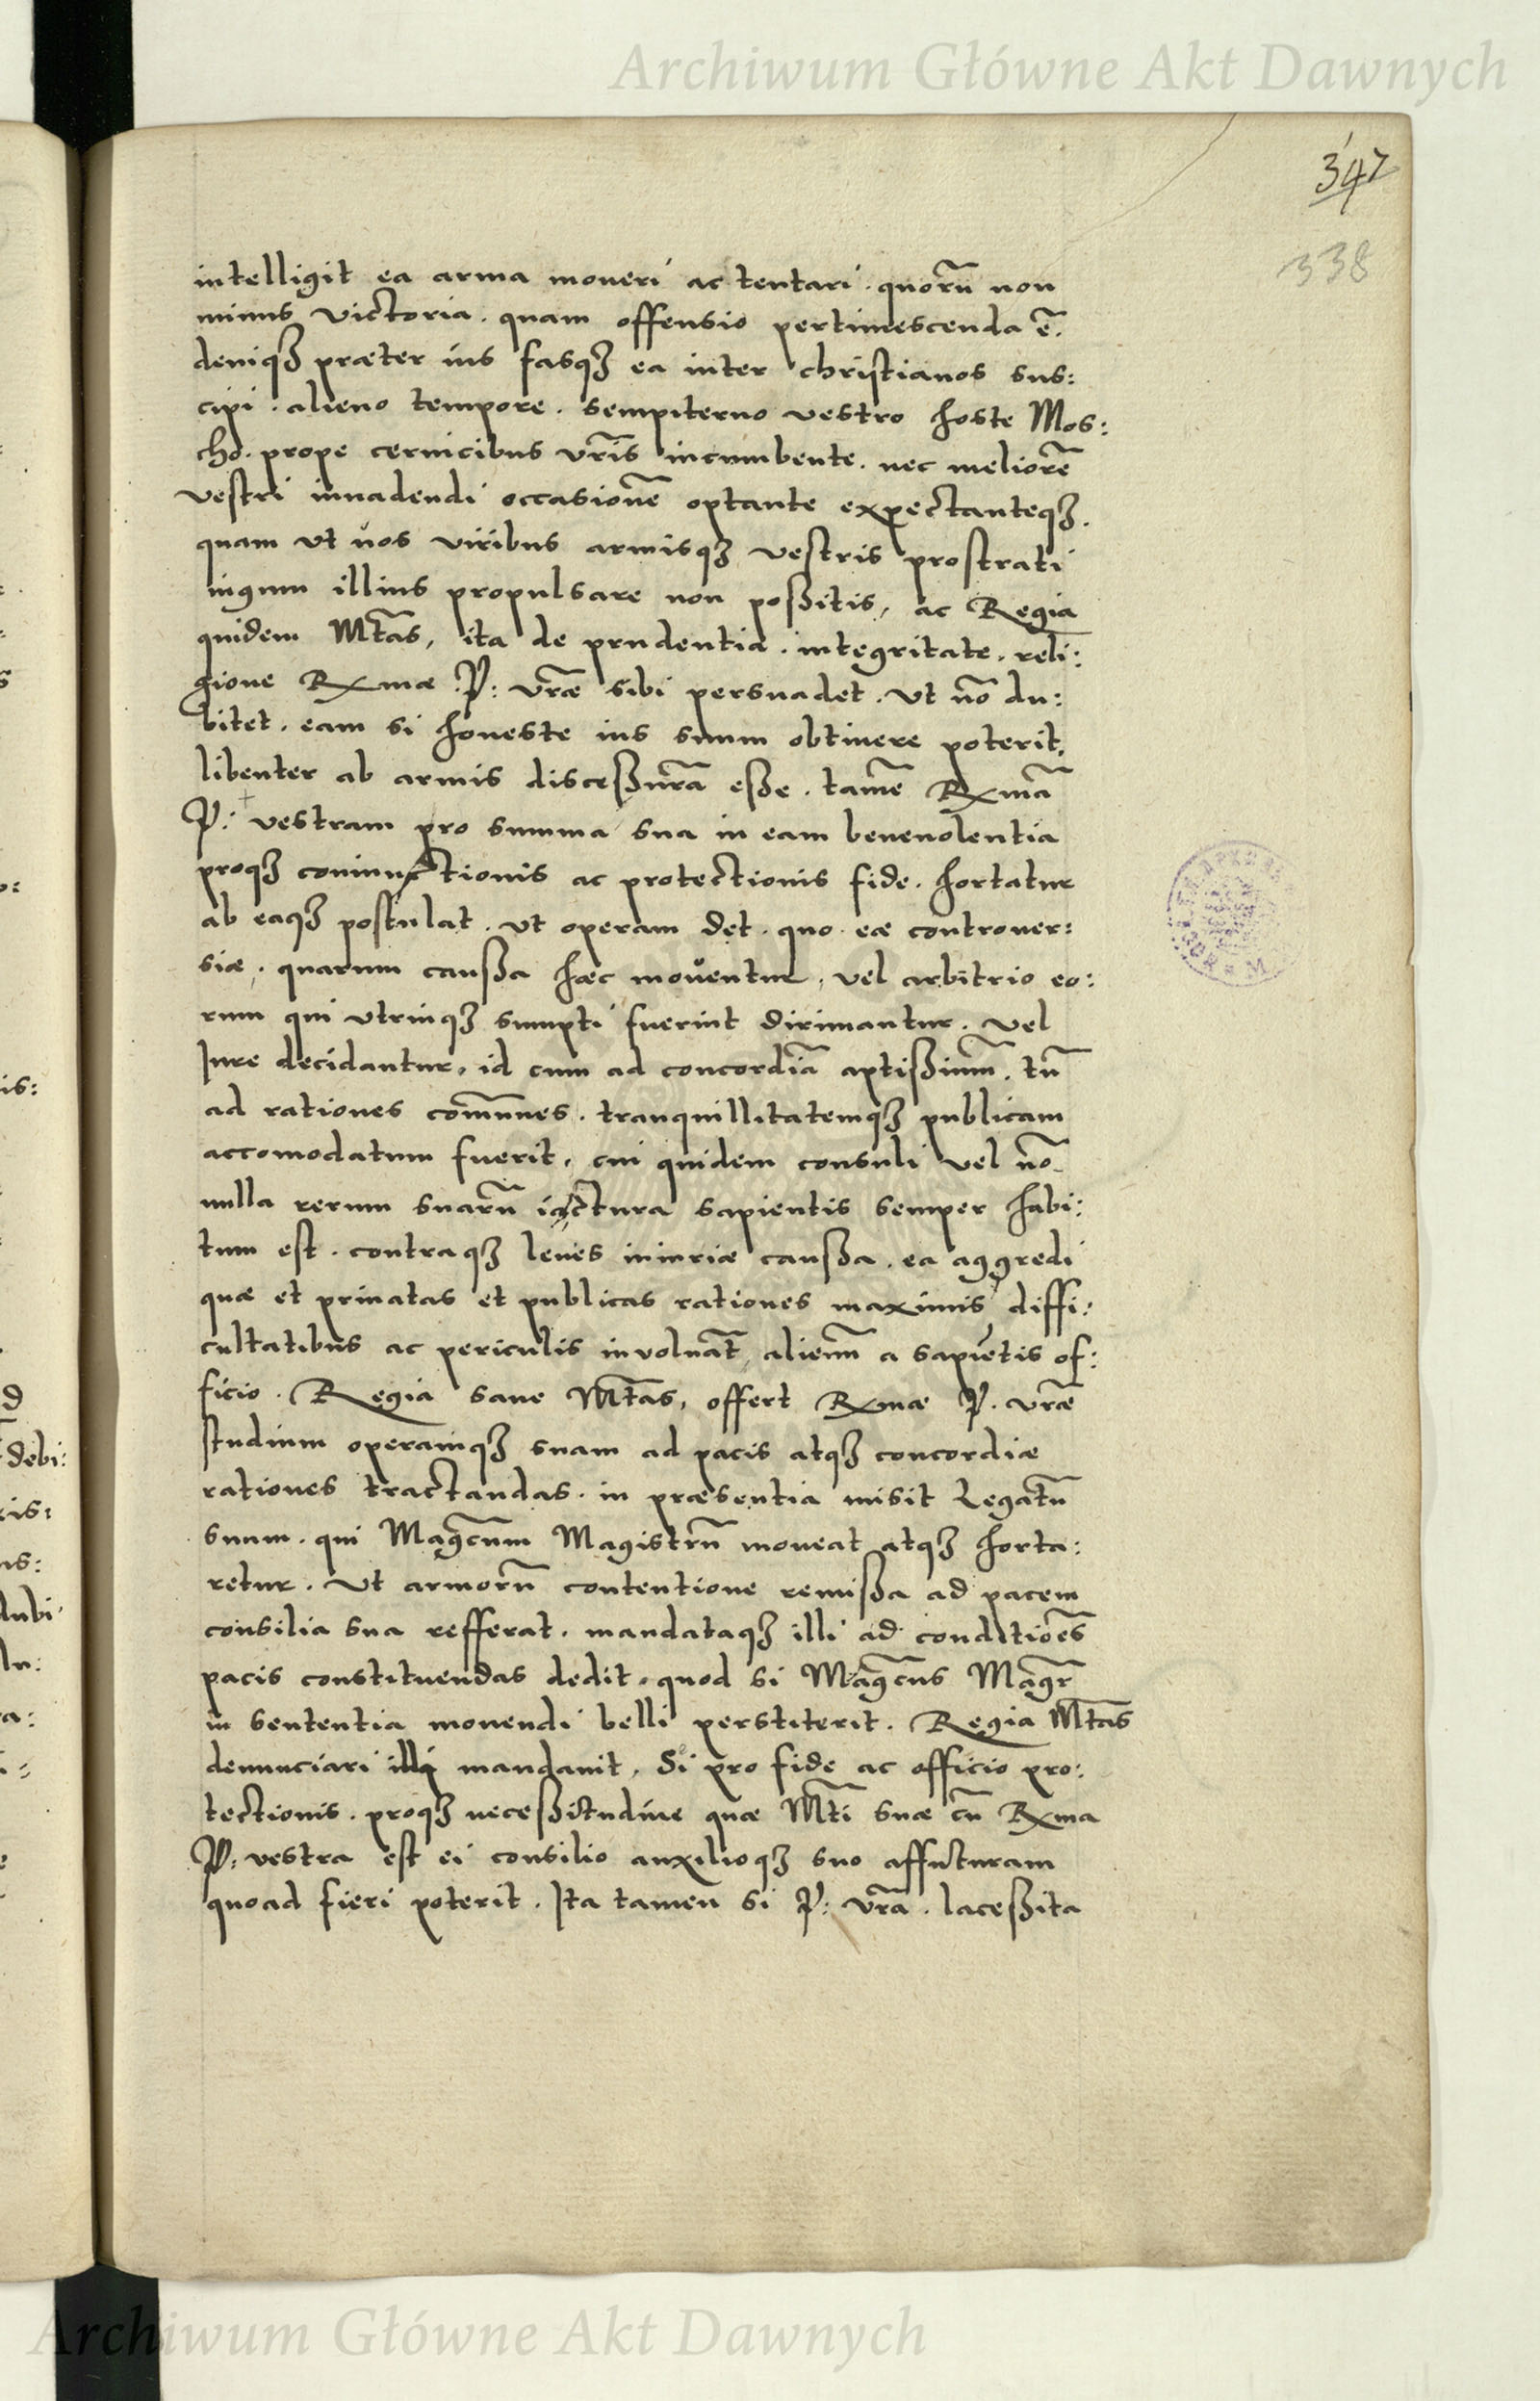 Archiwum Główne Akt Dawnych
347
338
intelligit ea arma moueri ac tentari. quorũ non
minus victoria. quam offensio pertimescenda ẽ.
deniqȝ præter ius fasqȝ ea inter christianos sus:
cipi. alieno tempore. sempiterno vestro hoste Mos:
cho. prope ceruicibus vr̃is incumbente. nec meliorẽ
vestri inuadendi occasionẽ optante expectanteqȝ.
quam vt uos viribus armisqȝ vestris prostrati
iugum illius propulsare non poßitis, ac Regia
quidem Mt̃as, ita de prudentia. integritate. reli:
gione Rxmæ P: vr̃æ sibi persuadet. vt nõ du:
bitet. eam si honeste ius suum obtinere poterit,
libenter ab armis disceßurã eße. tamẽ Rxmã
P: vestram pro summa sua in eam beneuolentia
proqȝ coniunctionis ac protectionis fide. hortatur
ab eaqȝ postulat. vt operam det. quo eæ controuer:
siæ. quarum caußa hæc mouentur, vel arbitrio eo:
rum qui vtrinqȝ sumpti fuerint dirimantur. vel
Jure decidantur, id cum ad concordiã aptißimũ. tũ
ad rationes com̃unes. tranquillitatemqȝ publicam
accomodatum fuerit, cui quidem consuli vel nõ
nulla rerum suarũ iactura sapientis semper habi:
tum est. contraqȝ leues iniuriæ caußa. ea aggredi
quæ et priuatas et publicas rationes maximis diffi:
cultatibus ac periculis inuoluãt, alienũ a sapiẽtis of:
ficio. Regia sane Mt̃as, offert Rxmæ P. vr̃æ
studium operamqȝ suam ad pacis atqȝ concordiæ
rationes tractandas. in præsentia misit Legatũ
suum. qui Mag̃cum Magistrũ moueat atqȝ horta:
retur. vt armorũ contentione remißa ad pacem
consilia sua refferat. mandataqȝ illi ad conditiões
pacis constituendas dedit. quod si Mag̃cus Mag̃r
in sententia mouendi belli perstiterit. Regia Mt̃as
denunciari illi mandauit, Si pro fide ac officio pro:
tectionis. proqȝ neceßitudine quæ Mt̃i suæ cũ Rxma
P: vestra est ei consilio auxilioqȝ suo affuturam
quoad fieri poterit. Jta tamen si P: vr̃a. laceßita
Archiwum Główne Akt Dawnych